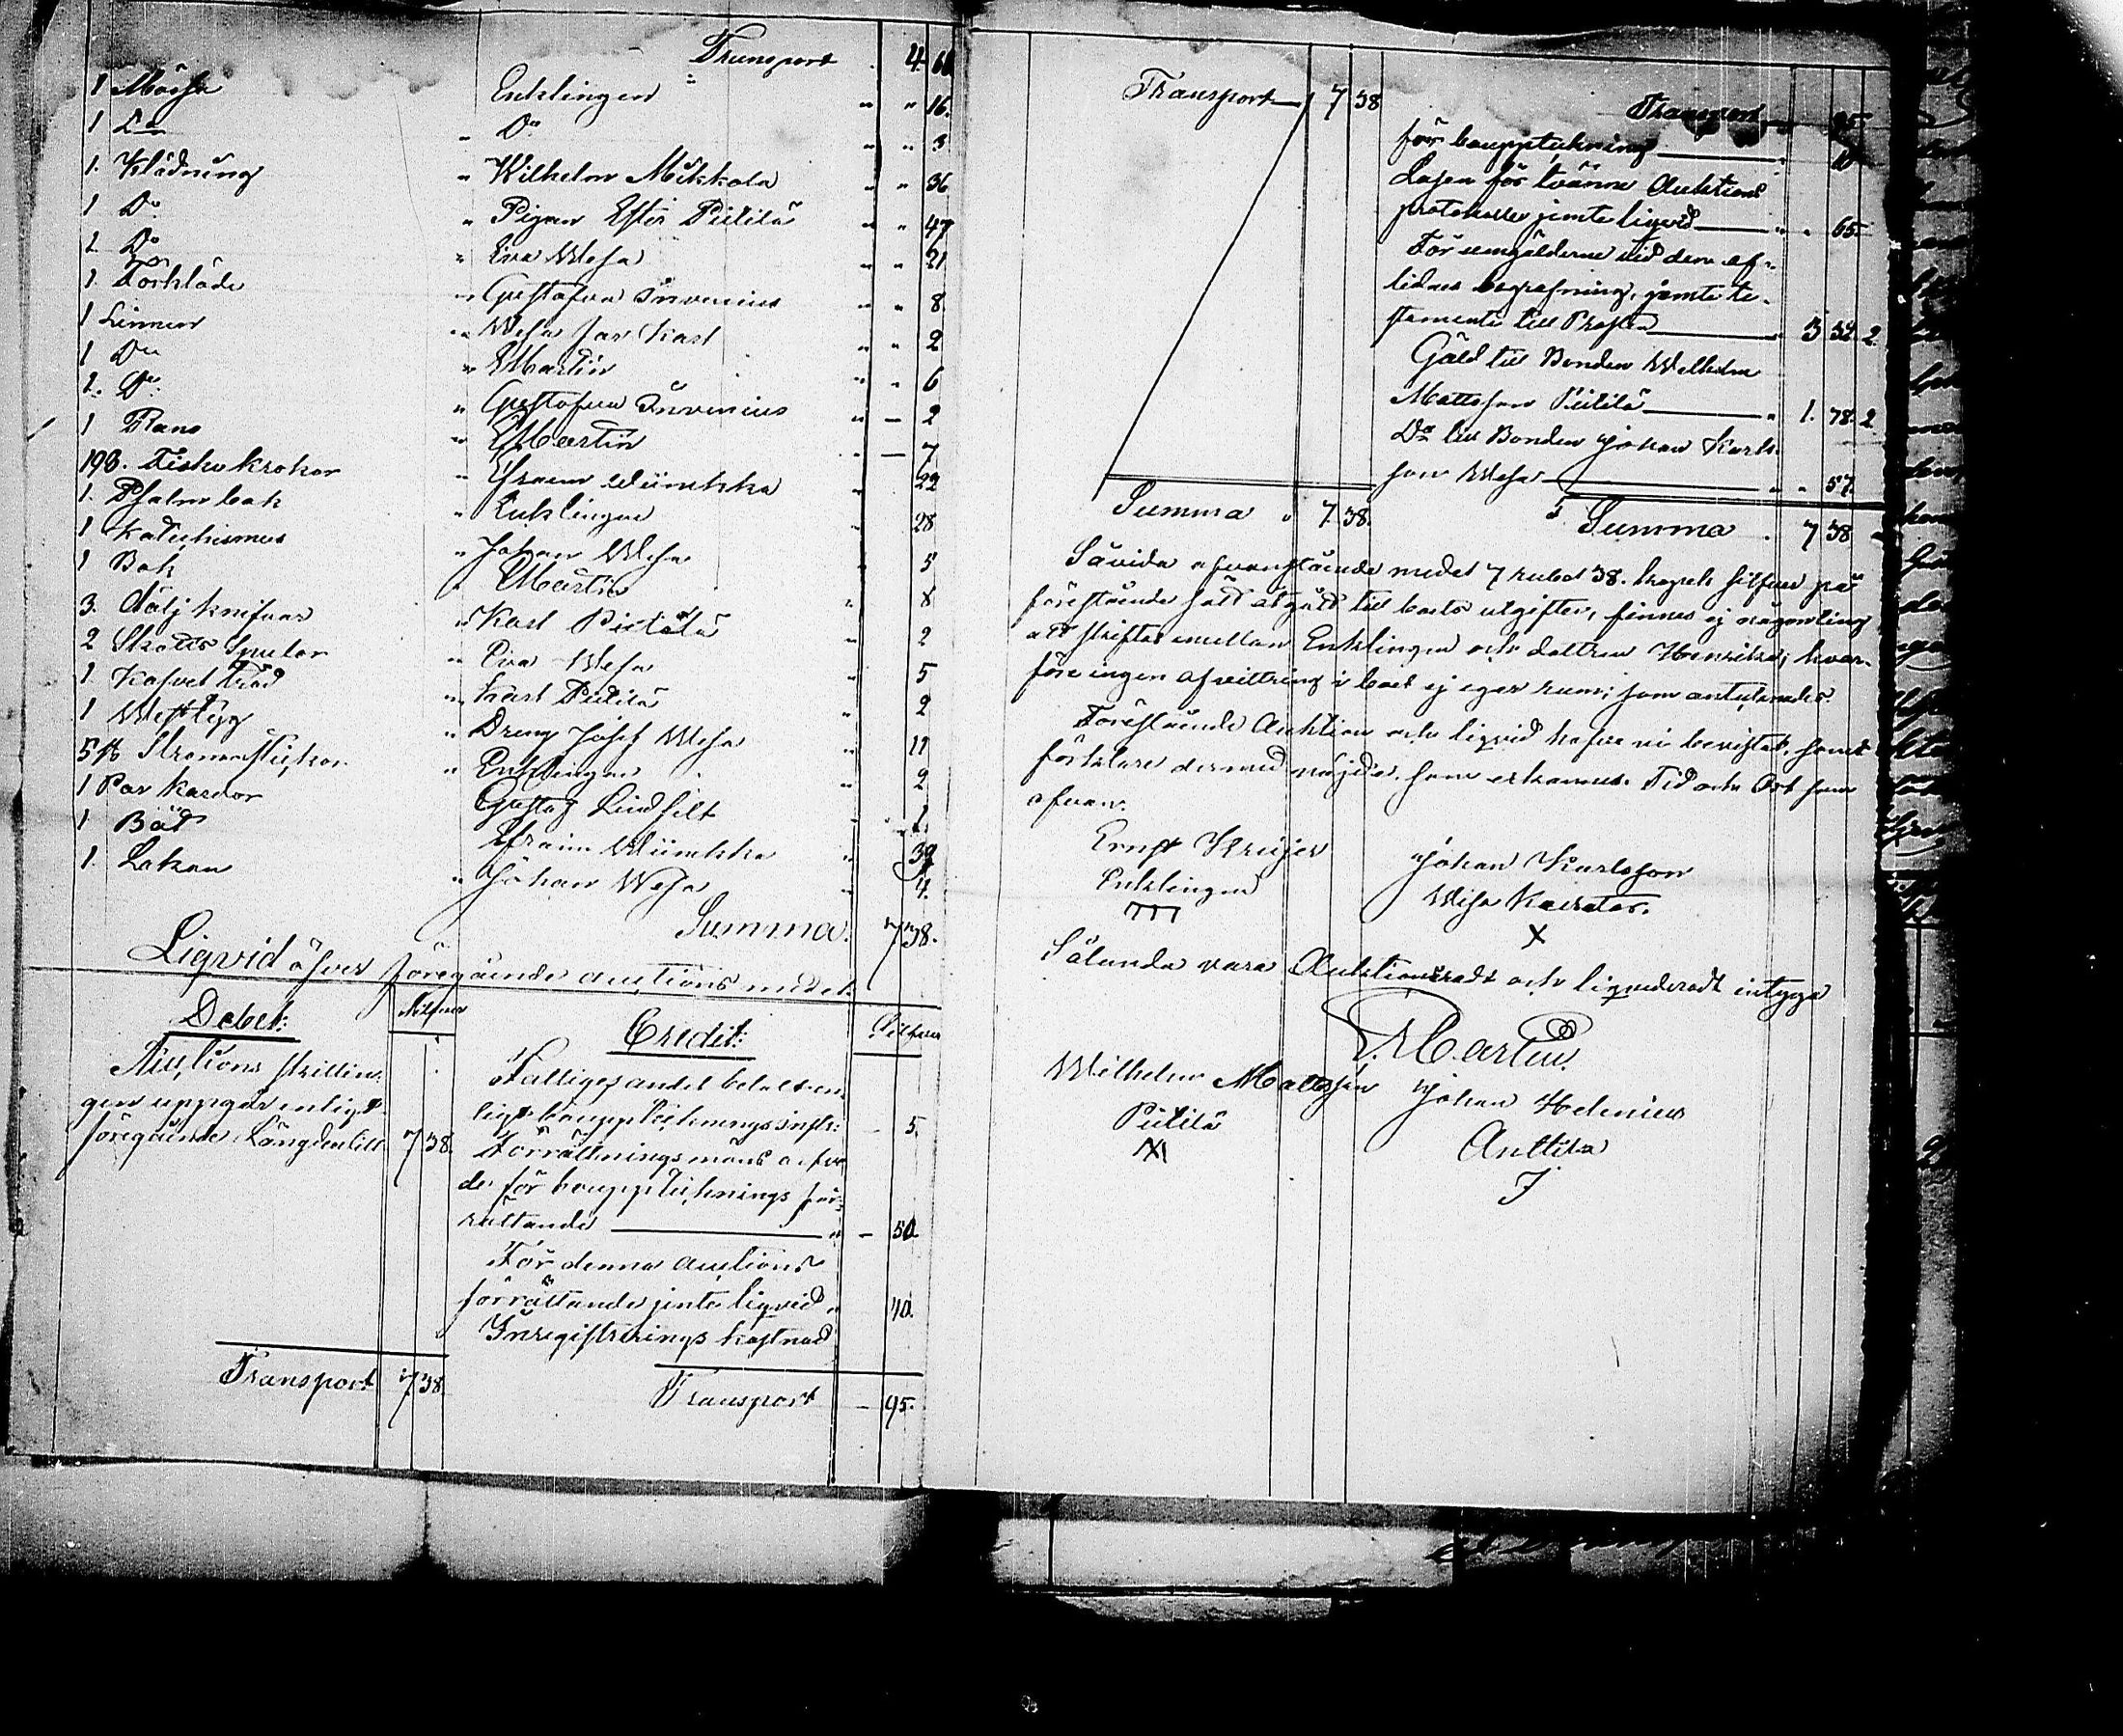 Transport 4 66
1 Mössa Enklingen " " 16.
1 Do " Do " " 3
1. Klädning " Wilhelm Mikkola " " 36
1 Do " Pigan Ester Piitilä " " 47
1 Do " Eva Wesa " " 21
1. Förkläde " Gustafva Invenius " " 8
1 Linnen " Wesa Jac Karl " " 2
1 Do " EMartin " " 6
2. Do " Gustafva Invenius " — 2
1 " EMartin — 7
198. Fiskekrokar " Efraim Wiinikka " 22
1. Psalmbok " Enklingen " 28
1 Katechismus " Johan Wesa " 5
1 Bok " EMartin " 8
3. Täljknifvar " Karl Piitilä " 2
2 Skotts Spolar " Eva Wesa " 5
1 " Karl Piitilä " 2
1 " Dreng Josef Wesa " 11
5 st Strumstickor " Enklingen " 2
1 Par Kardor Gustaf Lindfelt " 1.
1 Båt Efraim Wiinikka " 39
1. Lakan " Johan Wesa " 4.
Summa. 7 38.
Liqvid öfver föregående auctions medel.
Debet: Silfver
Auctions skillin-
gen uppgår enligt
föregående Längden till 7 38.
Transport 7 38
Credit: Silfver
Fattiges andel betalt en-
ligt bouppteckningsinstr: — 5.
Förrättningsmäns arfvo-
de för bouppteckningsför-
rättande — " — 50.
För denna auctions
förrättande jemte liqvid " 40.
Inregistrerings kostnad
Transport — 95.
Transport 7 38
Summa " 7. 38.
Transport 95.
för bouppteckning — 10
Lösen för tvänne Auktions
protokoller jemte liqvid — " " 65.
För omgälderne vid den af-
lidnes begrafning, jemte te-
stamente till Prosten — " 3 32 2
Gäld till Bonden Wilhelm
Mattsson Piitilä — " 1. 78. 2
Do till Bonden Johan Karls-
son Wesa — " " 57.
Summa 7 38
Såvida ofvanstående medel 7 rubel 38. kopek silfver på
förestående sätt åtgått till boets utgifter, finnes ej någonting
att skiftas emellan Enklingen och dottren Henrika; hvar-
före ingen afvittring i boet ej eger rum; som antecknades.
Förestående Auktion och liqvid hafva vi bevistat, samt
förklare dermed nöjde. som erkännes. Tid och Ort som
ofvan.
Ernst Krujer
Enklingen
m
Johan Karlsson
Wesa
X
Sålunda vara Auktioneradt och liqvideradt intyga
EMartin.
Wilhelm Mattsson
Piitilä
Johan Helenius
Anttila